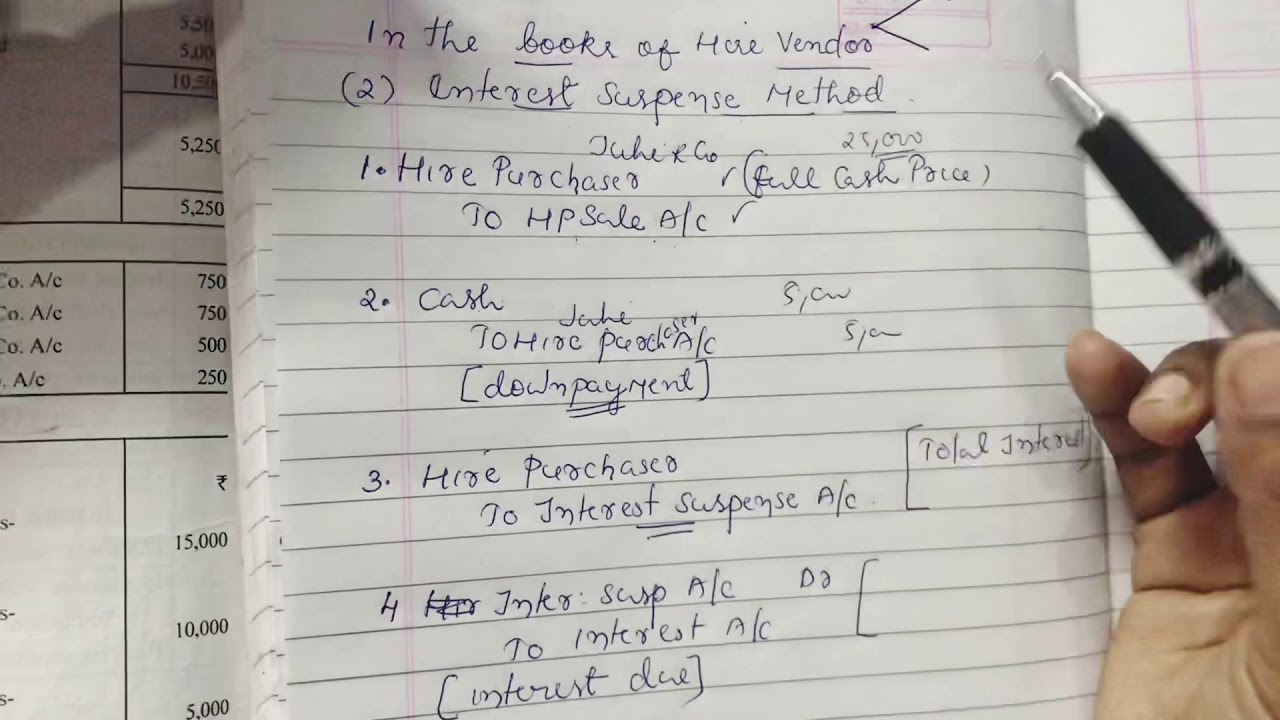 5,50
5,00
10,50
5,250
5,250
Co. A/c 750
Co. A/c 750
Co. A/c 500
A/c 250
₹
s-
15,000
s-
10,000
s-
5,000
In the books of Hire Vendor
(2) Interest Suspense Method.
Juhi & Co 25,000
1. Hire Purchaser (full Cash Price)
TO HP Sale A/c
2. Cash 5,000
Juhi
TO Hire purchaser A/c 5,000
[downpayment]
3. Hire Purchaser [Total Interest]
TO Interest suspense A/c.
4 Inter: susp A/c Dr
TO interest A/c
[interest due]